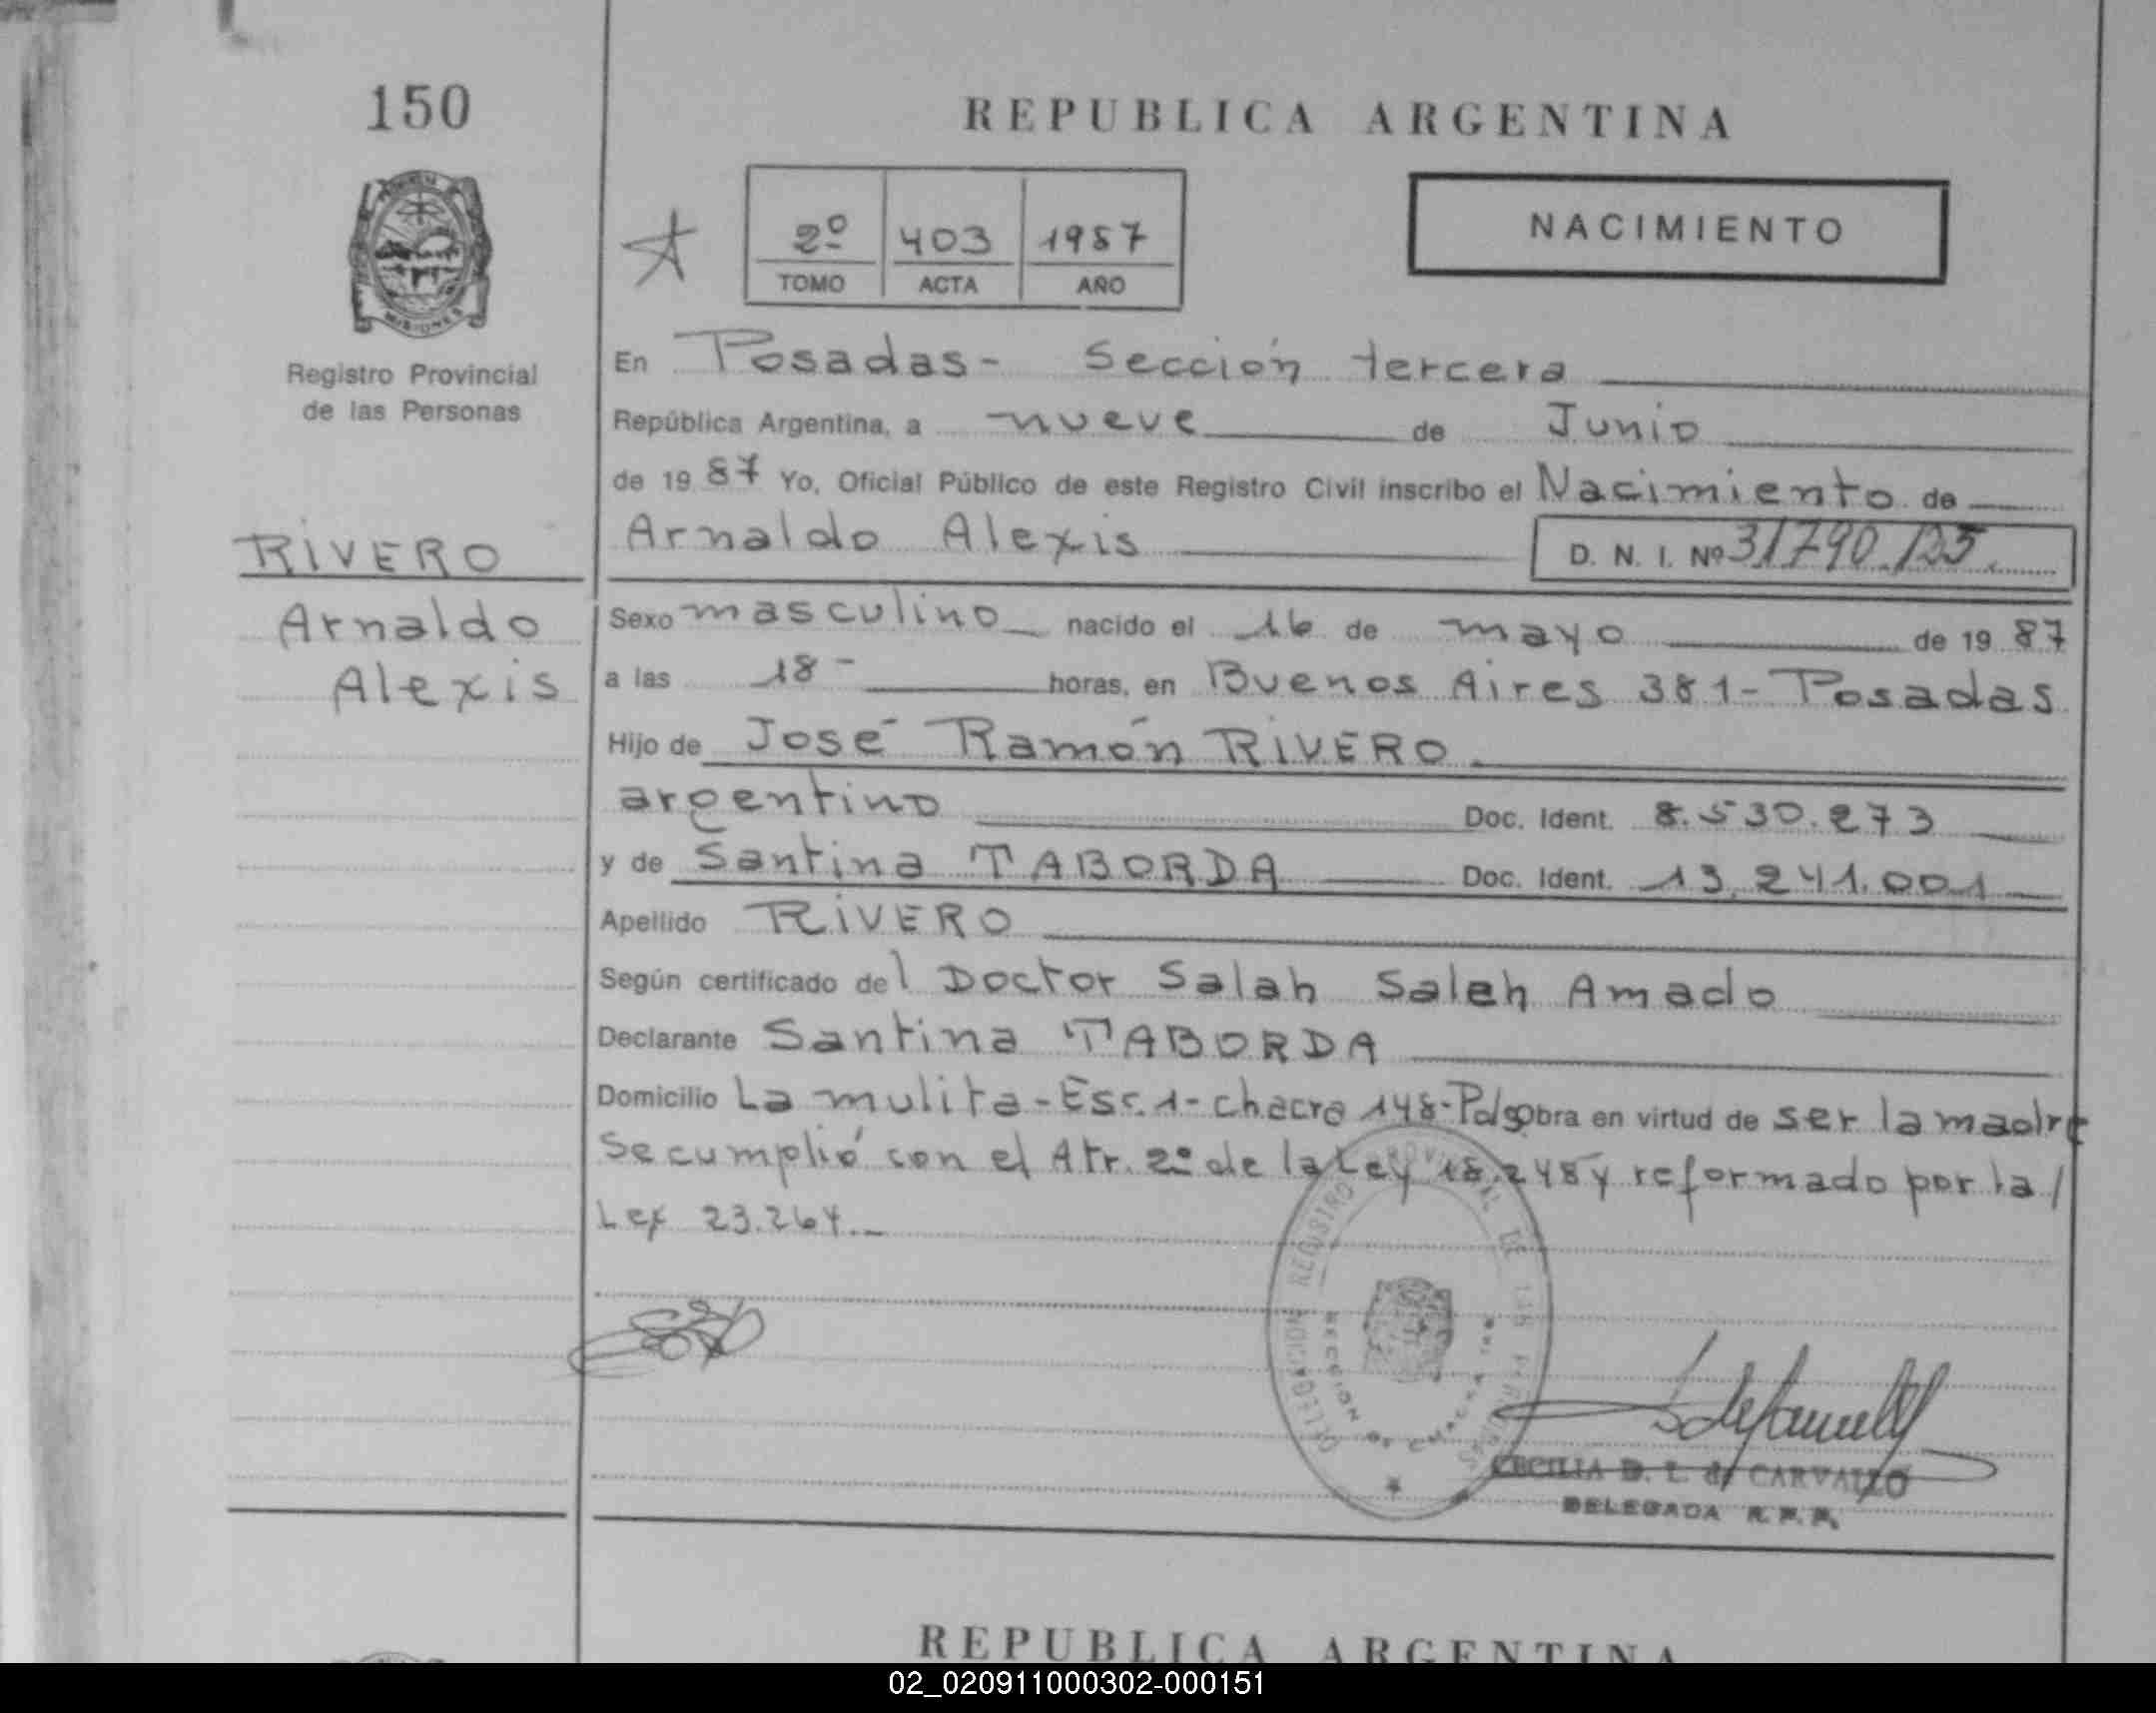 150
REPUBLICA ARGENTINA
2º 403 1987
TOMO ACTA AÑO
NACIMIENTO
MISIONES
Registro Provincial
de las Personas
En Posadas- Sección tercera
República Argentina, a nueve de Junio
de 19 87 Yo, Oficial Público de este Registro Civil inscribo el Nacimiento de
Arnaldo Alexis D. N. I. Nº 31790.125
RIVERO
Arnaldo
Alexis
Sexo masculino nacido el 16 de mayo de 19 87
a las 18- horas, en Buenos Aires 381- Posadas
Hijo de José Ramón RIVERO
argentino Doc. Ident. 8.530.273
y de Santina TABORDA Doc. Ident. 13.241.001
Apellido RIVERO
Según certificado del Doctor Salah Saleh Amado
Declarante Santina TABORDA
Domicilio La mulita-Esc.1-chacra 148-Pds obra en virtud de ser la madre
Se cumplió con el Atr. 2º de la Ley 18.248 y reformado por la /
Ley 23.264._
DELEGACION REGISTRO PROVINCIAL DE LAS PERSONAS
SECCION
CECILIA D. L. de CARVALLO
DELEGADA R. P. P.
REPUBLICA ARGENTINA
02_020911000302-000151